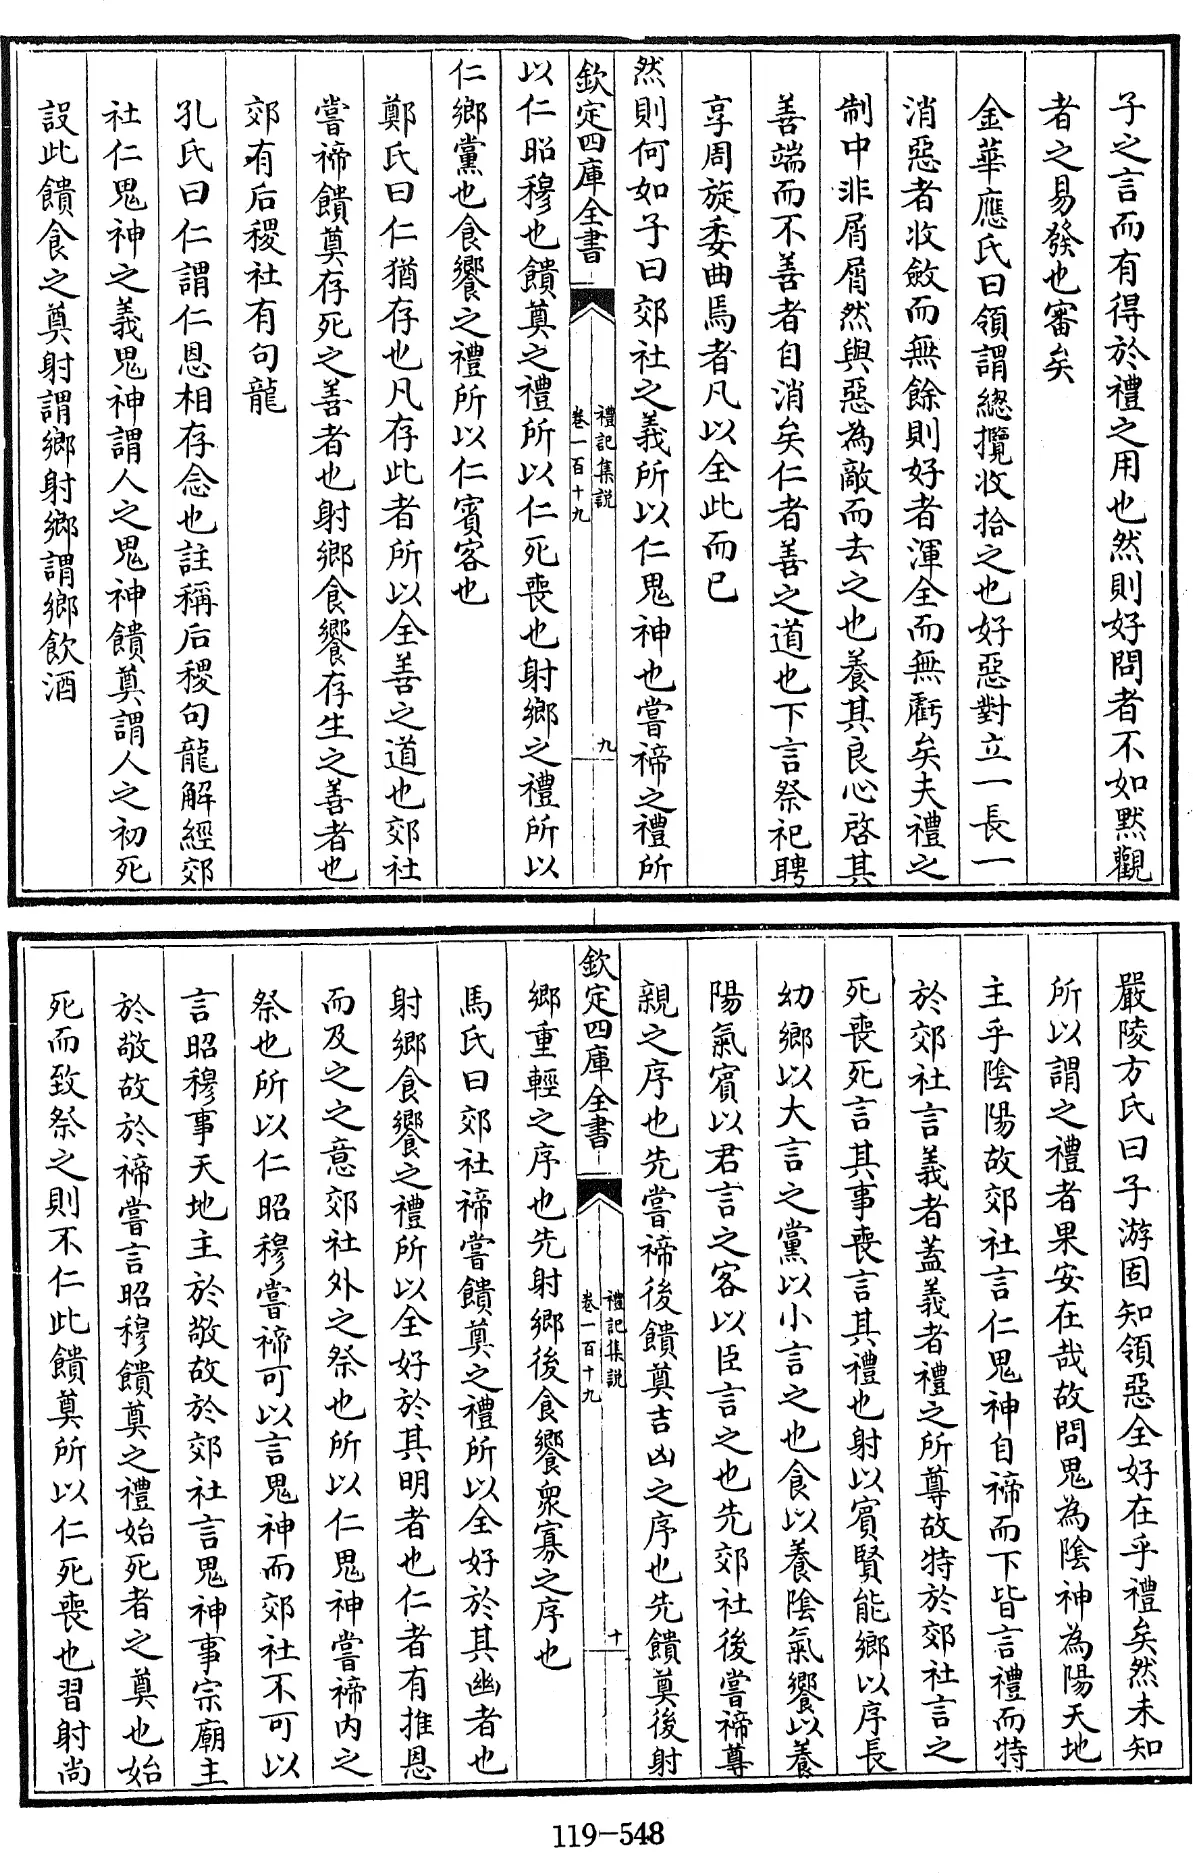 子之言而有得於禮之用也然則好問者不如黙觀
者之易發也審矣
金華應氏曰領謂總攬收拾之也好惡對立一長一
消惡者收斂而無餘則好者渾全而無虧矣夫禮之
制中非屑屑然與惡為敵而去之也養其良心啓其
善端而不善者自消矣仁者善之道也下言祭祀聘
享周旋委曲焉者凡以全此而已
然則何如子曰郊社之義所以仁鬼神也嘗禘之禮所
欽定四庫全書
禮記集説
卷一百十九
九
以仁昭穆也饋奠之禮所以仁死喪也射鄉之禮所以
仁鄉黨也食饗之禮所以仁賓客也
鄭氏曰仁猶存也凡存此者所以全善之道也郊社
嘗禘饋奠存死之善者也射鄉食饗存生之善者也
郊有后稷社有句龍
孔氏曰仁謂仁恩相存念也註稱后稷句龍解經郊
社仁鬼神之義鬼神謂人之鬼神饋奠謂人之初死
設此饋食之奠射謂鄉射鄉謂鄉飲酒
嚴陵方氏曰子游固知領惡全好在乎禮矣然未知
所以謂之禮者果安在哉故問鬼為陰神為陽天地
主乎陰陽故郊社言仁鬼神自禘而下皆言禮而特
於郊社言義者蓋義者禮之所尊故特於郊社言之
死喪死言其事喪言其禮也射以賓賢能鄉以序長
幼鄉以大言之黨以小言之也食以養陰氣饗以養
陽氣賓以君言之客以臣言之也先郊社後嘗禘尊
親之序也先嘗禘後饋奠吉凶之序也先饋奠後射
欽定四庫全書
禮記集説
卷一百十九
十
鄉重輕之序也先射鄉後食饗衆寡之序也
馬氏曰郊社禘嘗饋奠之禮所以全好於其幽者也
射鄉食饗之禮所以全好於其明者也仁者有推恩
而及之之意郊社外之祭也所以仁鬼神嘗禘内之
祭也所以仁昭穆嘗禘可以言鬼神而郊社不可以
言昭穆事天地主於敬故於郊社言鬼神事宗廟主
於敬故於禘嘗言昭穆饋奠之禮始死者之奠也始
死而致祭之則不仁此饋奠所以仁死喪也習射尚
119-548